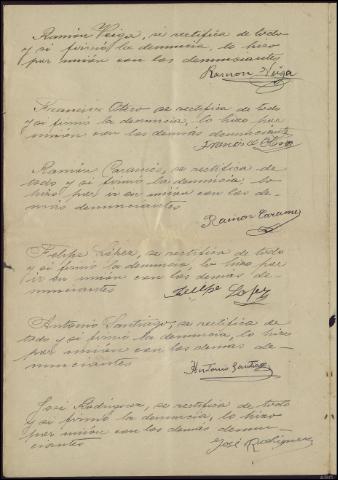 Ramón Veiga, se rectifica de todo
y si firmó la denuncia, lo hizo
por unión con los denunciantes
Ramon Veiga
Francisco Otero se rectifica de todo
y se firmó la denuncia, lo hizo por
unión con los demás denunciantes
Francisco Otero
Ramón Caramés, se rectifica de
todo y si firmó la denuncia, lo
hizo por ir en unión con los de-
más denunciantes
Ramon Caramés
Felipe López, se rectifica de todo
y si firmó la denuncia, lo hizo por
ir en unión con los demás de-
nunciantes
Felipe Lopez
Antonio Santiago, se rectifica de
todo y si firmó la denuncia, lo hizo
por unión con los demás de-
nunciantes
Antonio Santiago
José Rodríguez, se rectifica de todo
y si firmó la denuncia, lo hizo
por unión con los demás denun-
ciantes
José Rodriguez